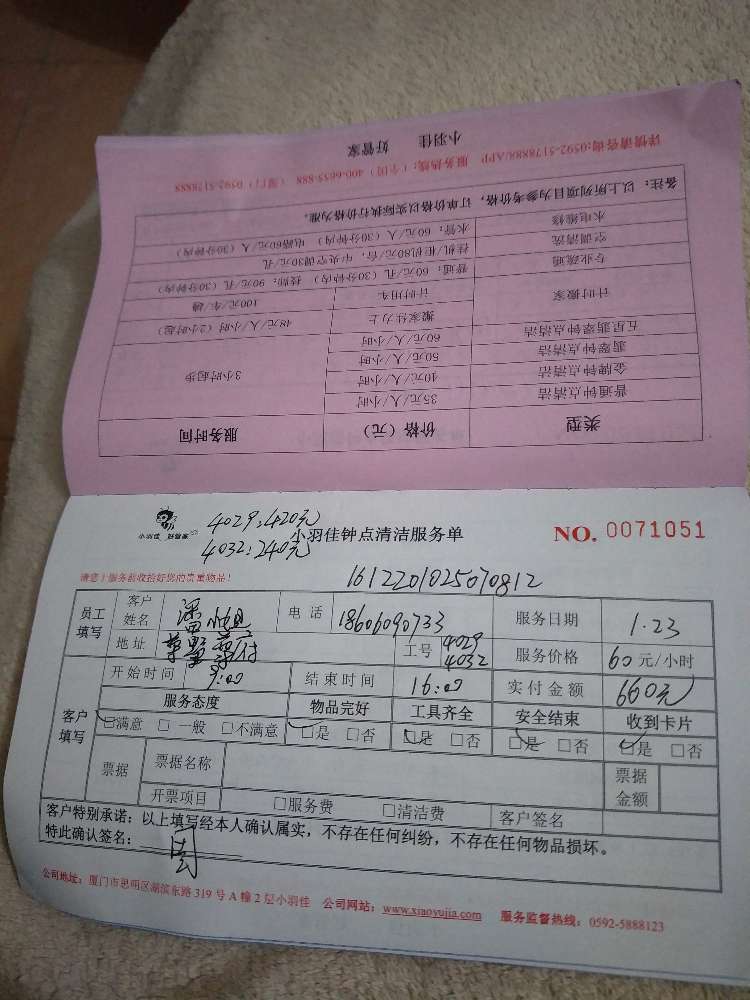 小羽佳 好管家
详情请咨询:0592-5178888/APP 服务热线:(全国) 400-6655-888 (厦门) 0592-5178888
备注:以上所列项目为参考价格,订单价格以实际执行价格为准。
水电维修 水管:60元/人(30分钟内) 电路60元/人(30分钟内)
空调清洗 挂机/柜机80元/台,中央空调30元/孔
专业疏通 普通:60元/孔(30分钟内) 技师:90元/孔(30分钟内)
计时搬家 计时用车 100元/车/趟
搬家壮力士 48元/人/小时(2小时起)
五星翡翠钟点清洁 60元/小时
翡翠钟点清洁 50元/小时 3小时起步
金牌钟点清洁 40元/人/小时
普通钟点清洁 35元/人/小时
类型 价格(元) 服务时间
4029:420元
4032:240元
小羽佳 好管家
小羽佳钟点清洁服务单
NO. 0071051
请您!服务前收拾好您的贵重物品!
1612201025070812
员工填写 客户姓名 电话 18606090733 服务日期 1.23
地址 工号 4029 4032 服务价格 60元/小时
客户填写 开始时间 9:00 结束时间 16:00 实付金额 660元
服务态度 物品完好 工具齐全 安全结束 收到卡片
☑满意 □一般 □不满意 ☑是 □否 ☑是 □否 ☑是 □否 ☑是 □否
票据 票据名称 票据金额
开票项目 □服务费 □清洁费 客户签名
客户特别承诺:以上填写经本人确认属实,不存在任何纠纷,不存在任何物品损坏。
特此确认签名:
公司地址:厦门市思明区湖滨东路319号A幢2层小羽佳 公司网站:www.xiaoyujia.com 服务监督热线:0592-5888123